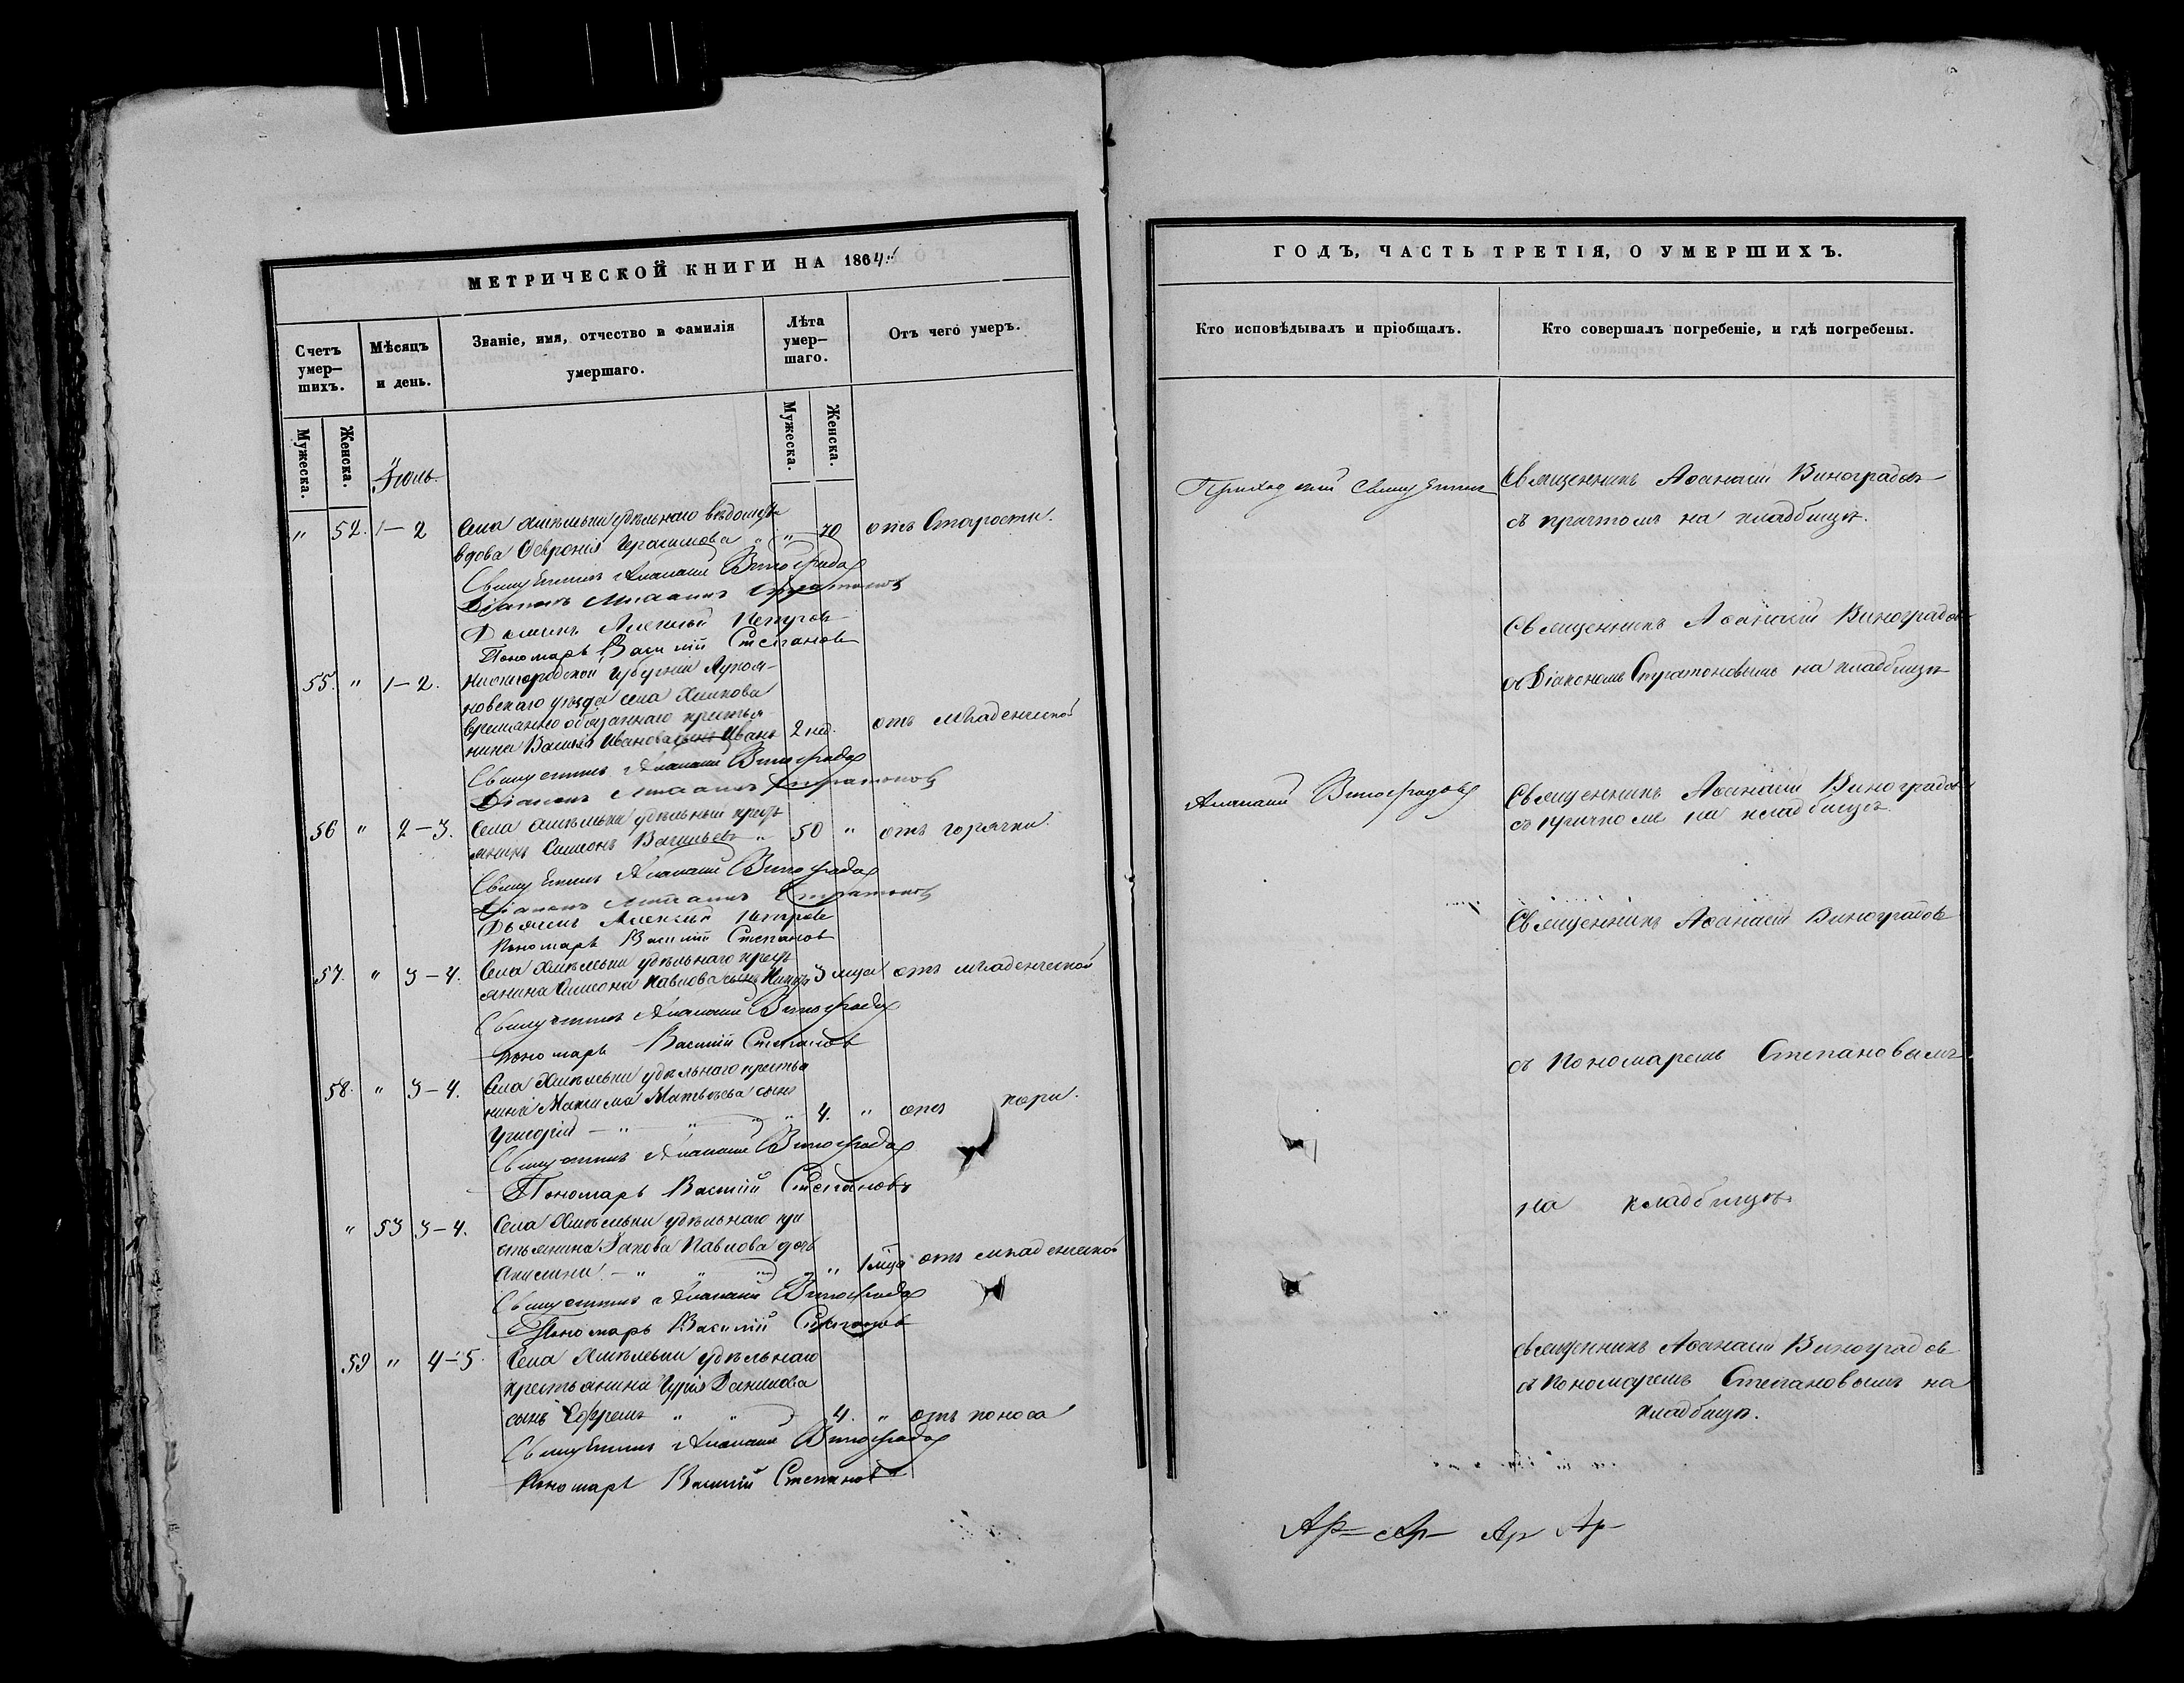 МЕТРИЧЕСКОЙ КНИГИ НА 1864й
Счетъ умер-шихъ.
Мѣсяцъ и день.
Званіе, имя, отчество и фамилія умершаго.
Лѣта умер-шаго.
Отъ чего умеръ.
Мужеска.
Женска.
Мужеска.
Женска.
Іюль.
" 52. 1–2 Села Хмѣлевки удѣльнаго вѣдомств
вдова Февронія Герасимова " " 70 отъ Старости.
Священникъ Аѳанасій Виноградовъ
Діаконъ Стратоновъ
Дьячекъ Алексѣй Петровъ
Пономарь Василій Степановъ
55. " 1–2. Нижегородской Губерніи Лукоя-
новскаго уѣзда села
временно обязаннаго крестья-
нина Василія Иванова сынъ Иванъ 2 нед. отъ младенческой
Священникъ Аѳанасій Виноградовъ
Діаконъ Стратоновъ
56 " 2–3. Села Хмѣлевки удѣльный крест
янинъ Симеонъ Васильевъ " 50 " отъ горячки.
Священникъ Аѳанасій Виноградовъ
Діаконъ Стратоновъ
Дьячекъ Алексѣй Петровъ
Пономарь Василій Степановъ
57. " 3–4. Села Хмѣлевки удѣльнаго крест
янина Симеона Павлова сынъ 3 мца отъ младенческой
Священникъ Аѳанасій Виноградовъ
Пономарь Василій Степановъ
58. " 3–4. Села Хмѣлевки удѣльнаго крестья
нина Максима Матвѣева сынъ
Григорій – " " " 4. " отъ кори.
Священникъ Аѳанасій Виноградовъ
Пономарь Василій Степановъ
" 53 3–4. Села Хмѣлевки удѣльнаго кре
стьянина Іакова Павлова дочь
Акилина – " " " " 1 мца отъ младенческой
Священникъ Аѳанасій Виноградовъ
Пономарь Василій Степановъ
59 " 4–5. Села Хмѣлевки удѣльнаго
крестьянина Гурія Данилова
сынъ Ефремъ " " 4. " отъ поноса
Священникъ Аѳанасій Виноградовъ
Пономарь Василій Степановъ
ГОДЪ, ЧАСТЬ ТРЕТІЯ, О УМЕРШИХЪ.
Кто исповѣдывалъ и пріобщалъ.
Кто совершалъ погребеніе, и гдѣ погребены.
Приходскій Священникъ
Священникъ Аѳанасій Виноградовъ
съ причтомъ на кладбищѣ.
Священникъ Аѳанасій Виноградовъ
съ Діакономъ Стратоновымъ на кладбищѣ
Аѳанасій Виноградовъ
Священникъ Аѳанасій Виноградовъ
съ причтомъ на кладбищѣ
Священникъ Аѳанасій Виноградовъ
съ Пономаремъ Степановымъ
на кладбищѣ.
Священникъ Аѳанасій Виноградовъ
съ Пономаремъ Степановымъ на
кладбищѣ.
Ар– Ар– Ар Ар–